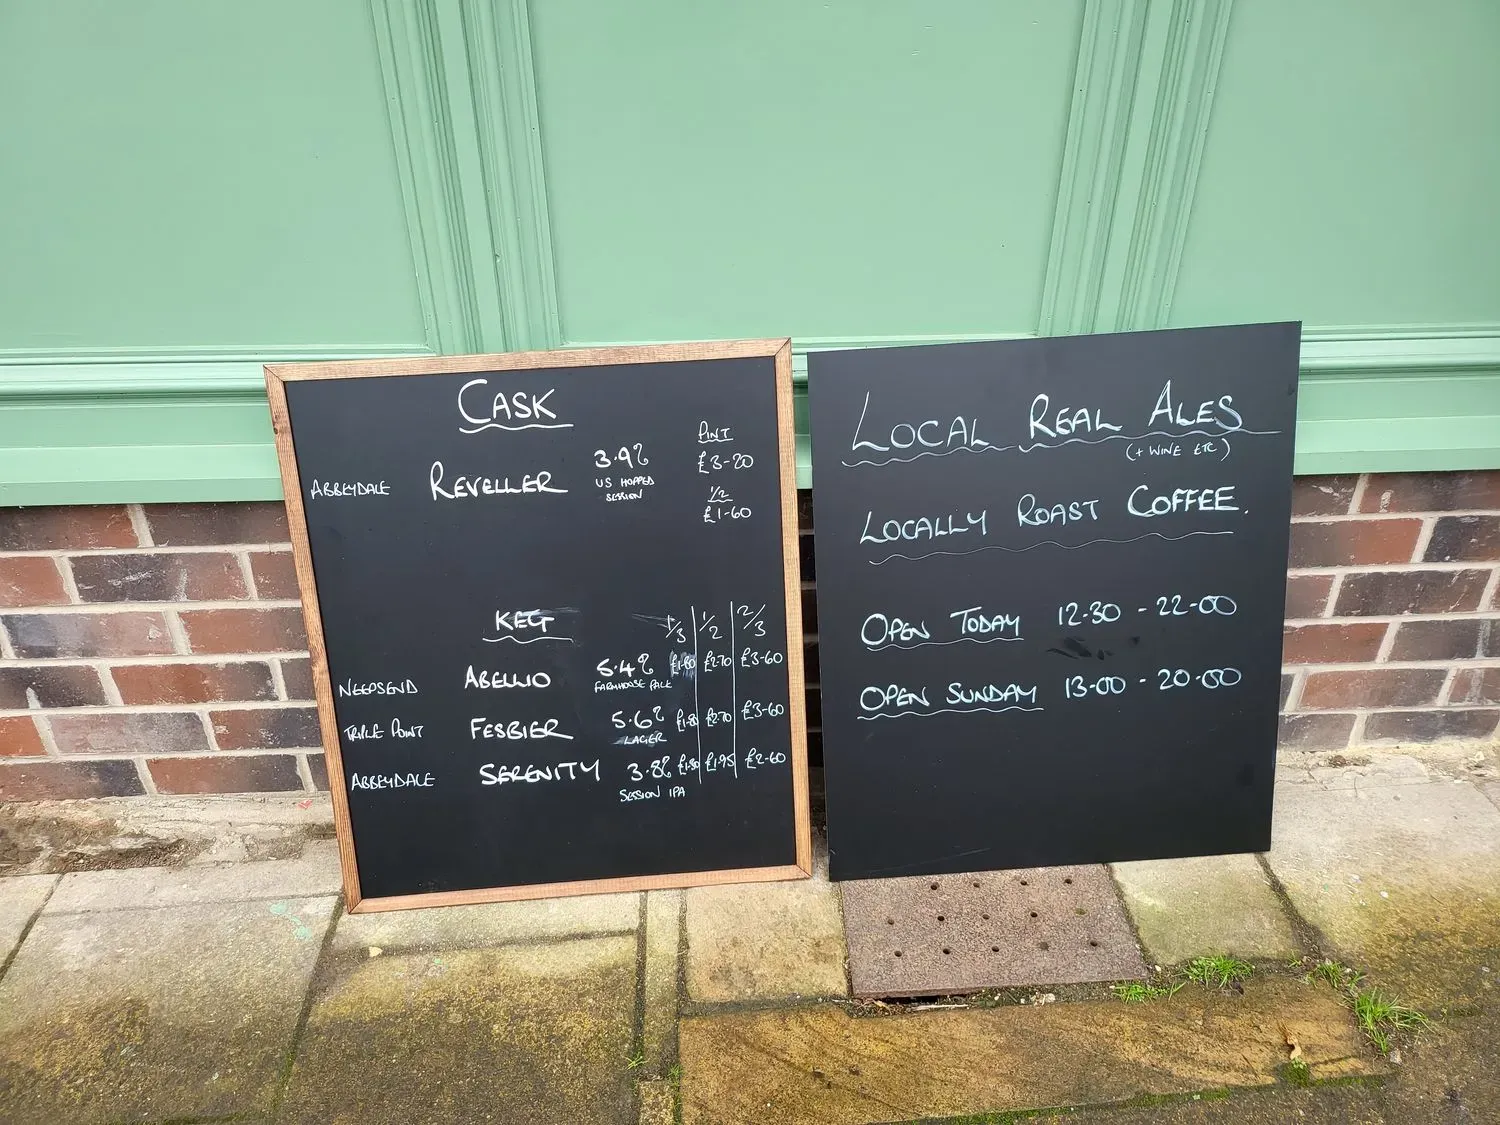 CASK
PINT
ABBEYDALE REVELLER 3.9% £3-20
US HOPPED
SESSION
1/2
£1-60
KEG 1/3 1/2 2/3
NEEPSEND ABELLIO 5.4% £1-80 £2-70 £3-60
FARMHOUSE PALE
TRIPLE POINT FESBIER 5.6% £1-80 £2-70 £3-60
LAGER
ABBEYDALE SERENITY 3.8% £1-30 £1-95 £2-60
SESSION IPA
LOCAL REAL ALES
(+ WINE ETC)
LOCALLY ROAST COFFEE.
OPEN TODAY 12-30 - 22-00
OPEN SUNDAY 13-00 - 20-00